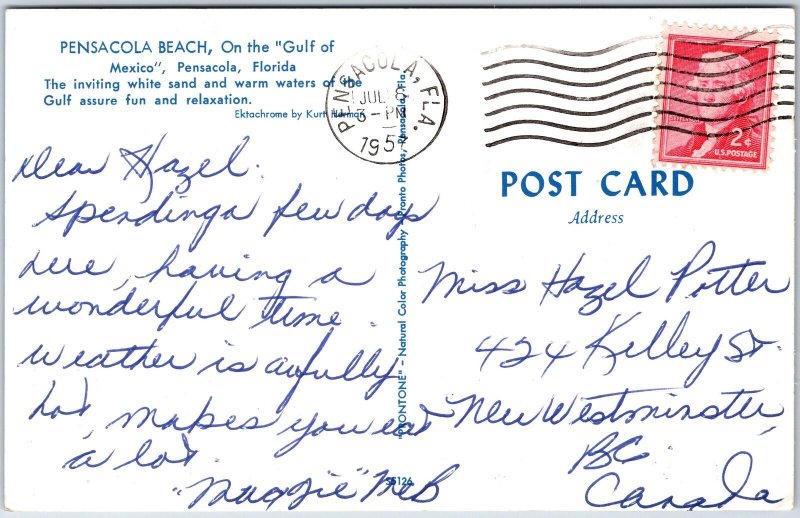 PENSACOLA BEACH, On the "Gulf of
Mexico", Pensacola, Florida
The inviting white sand and warm waters of the
Gulf assure fun and relaxation.
Ektachrome by Kurt
Dear Hazel.
Spending a few days
here, having a
wonderful time.
Weather is awfully
hot, makes you eat
a lot.
"Maggie" McB
"PRONTONE" - Natural Color Photography Pronto Photos, Pensacola, Fla.
S5126
PENSACOLA, FLA.
JUL
3-PM
2¢
U.S. POSTAGE
POST CARD
Address
Miss Hazel Potter
424 Kelley St.
New Westminster,
BC.
Canada